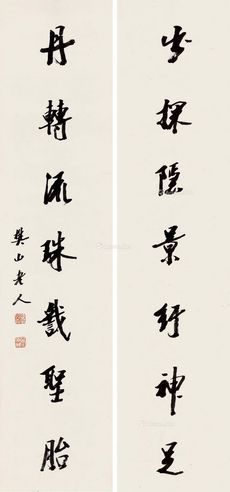 步探隱景神足
丹轉流珠戲聖胎
樊山老人